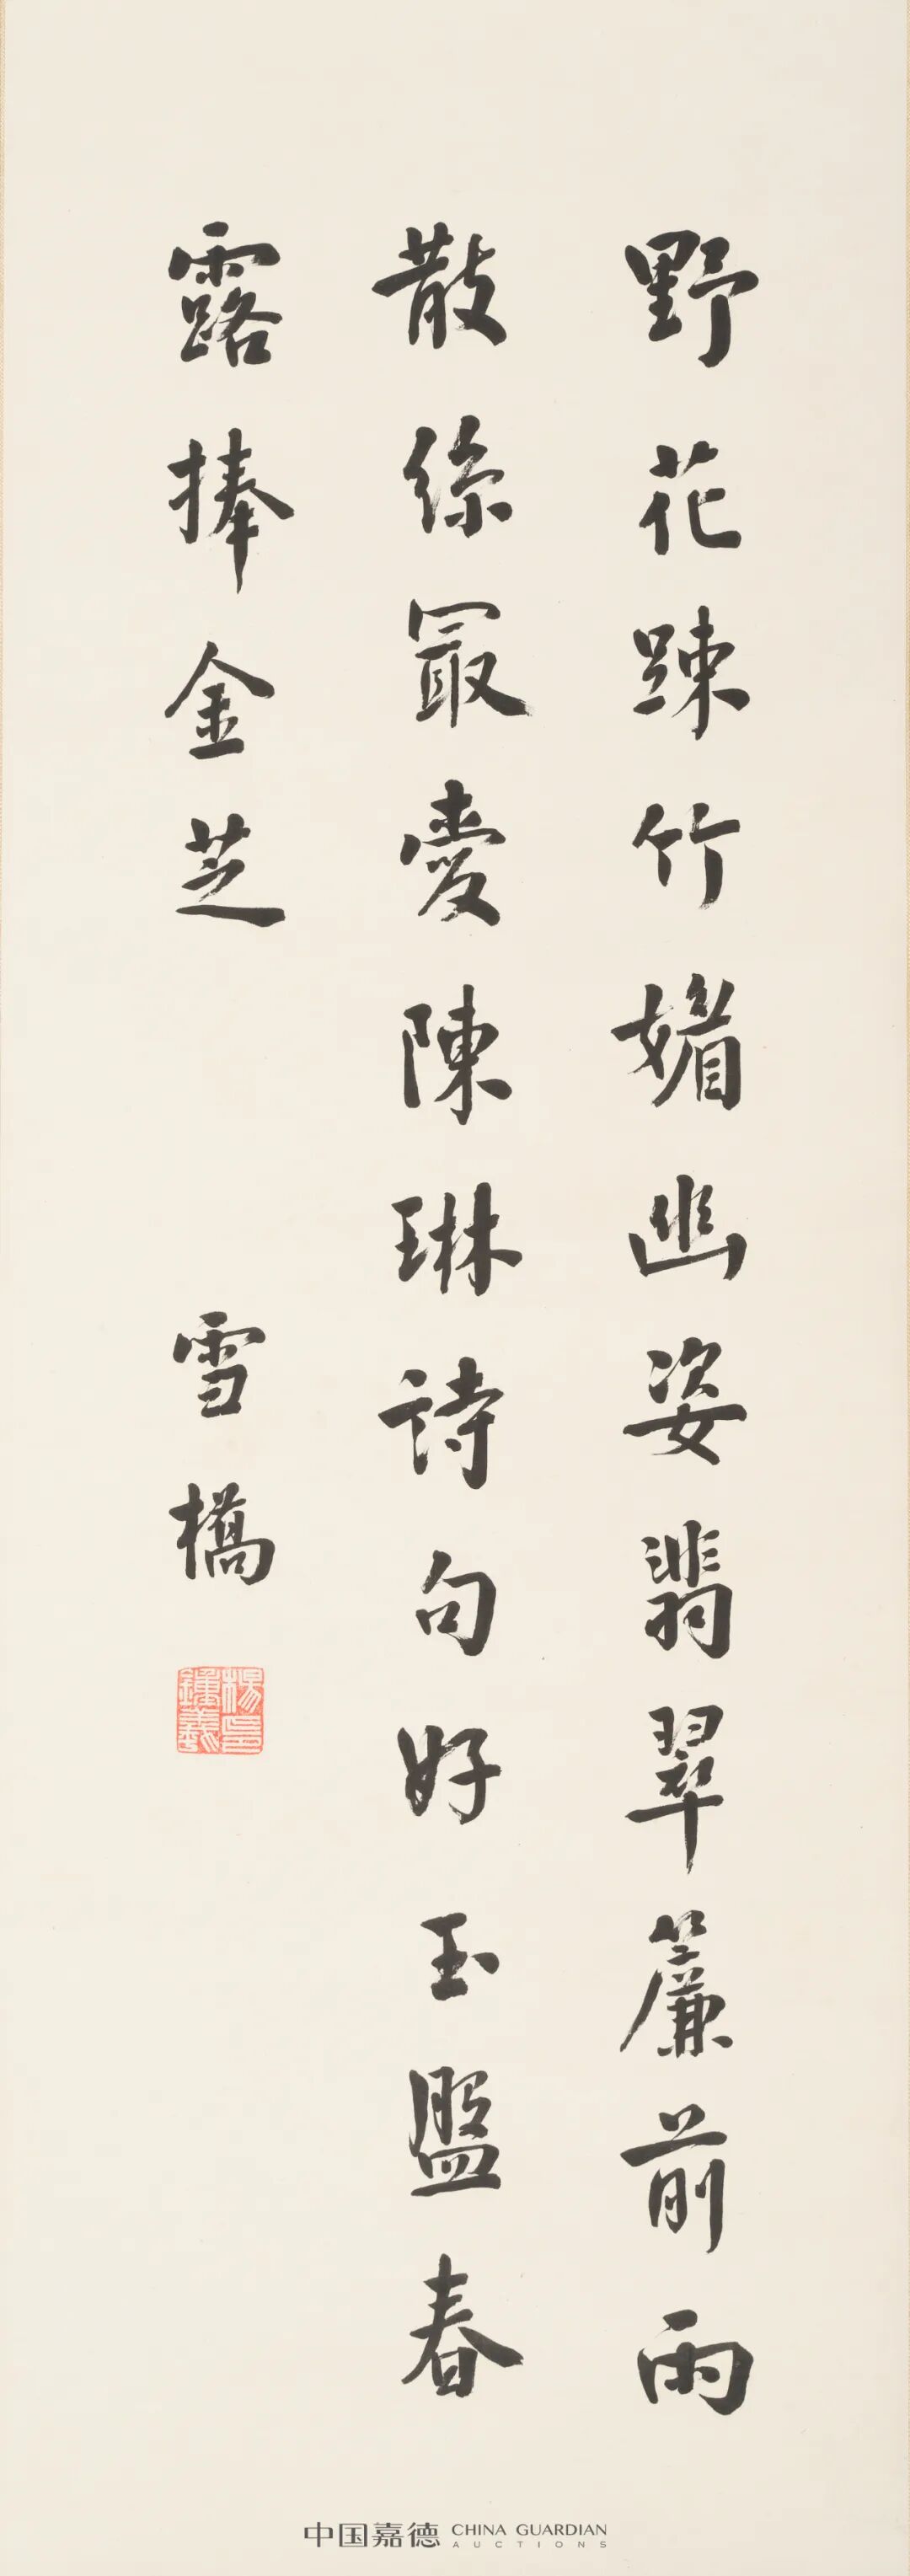 野花踈竹媚幽姿翡翠簾前雨
散絲冣愛陳琳詩句好玉盤春
露捧金芝
雪橋
楊印鍾羲
中国嘉德 CHINA GUARDIAN
AUCTIONS